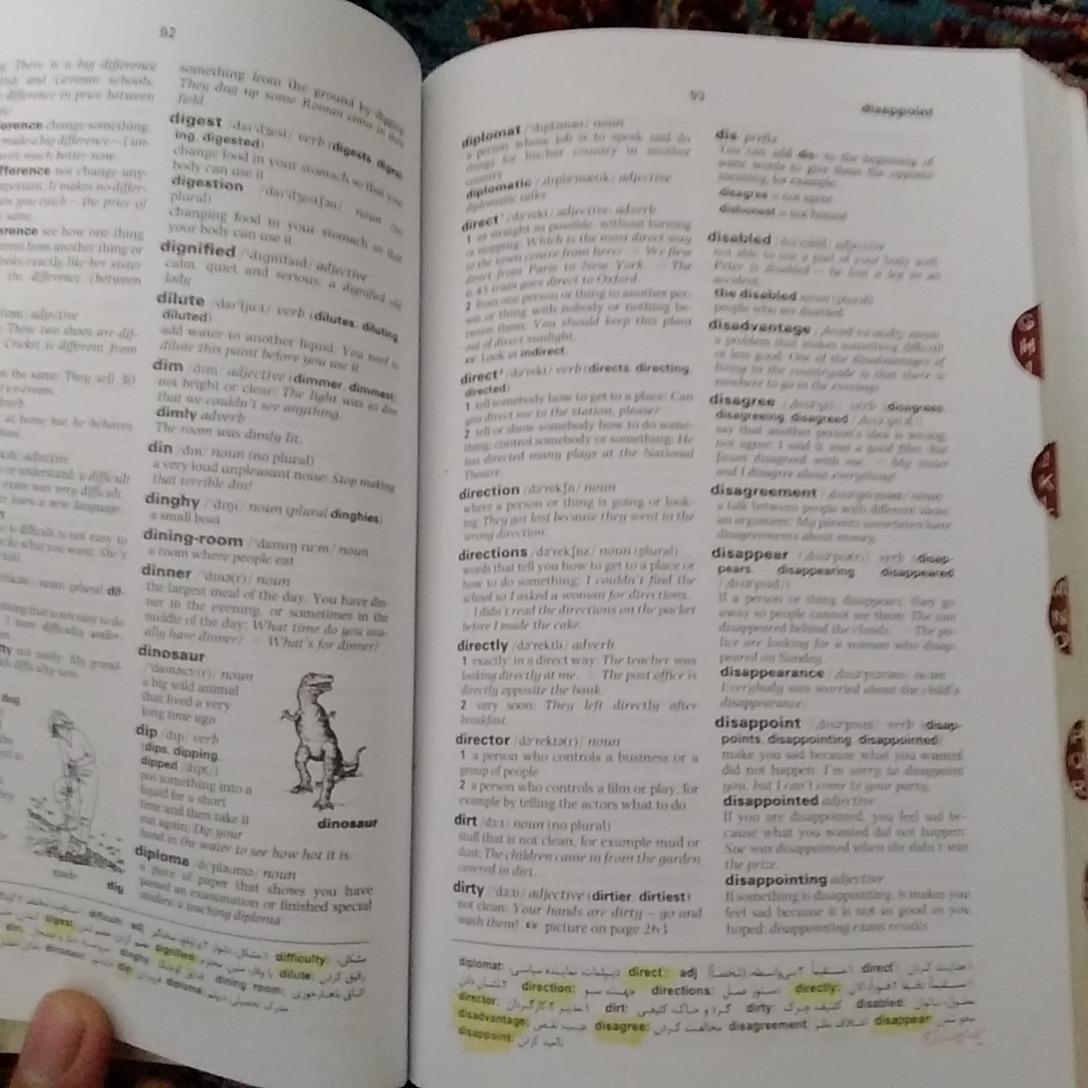 92
y. There is a big difference
and German schools.
difference in price between
ference change something
make a big difference – I
was much better now.
fference not change any-
portant. It makes no differ-
you catch – the price of
same.
erence see how one thing
erent from another thing or
looks exactly like her sister
the difference (between
adjective
These two shoes are dif-
Cricket is different from
the same: They sell 30
ice-cream.
at home but he behaves
adjective
or understand: a difficult
exam was very difficult.
to learn a new language.
is difficult is not easy to
do what you want: She's
child.
noun (plural dif-
something that is not easy to do
I have difficulty under-
ty not easily: My grand-
with difficulty now.
dug
something from the ground by digging
They dug up some Roman coins in their
field.
digest /daɪˈdʒest/ verb (digests, digest-
ing, digested)
change food in your stomach so that your
body can use it
digestion /daɪˈdʒestʃən/ noun (no
plural)
changing food in your stomach so that
your body can use it
dignified /ˈdɪgnɪfaɪd/ adjective
calm, quiet and serious: a dignified old
lady
dilute /daɪˈljuːt/ verb (dilutes, diluting,
diluted)
add water to another liquid: You need to
dilute this paint before you use it.
dim /dɪm/ adjective (dimmer, dimmest)
not bright or clear: The light was so dim
that we couldn't see anything.
dimly adverb
The room was dimly lit.
din /dɪn/ noun (no plural)
a very loud unpleasant noise: Stop making
that terrible din!
dinghy /ˈdɪŋi/ noun (plural dinghies)
a small boat
dining-room /ˈdaɪnɪŋ ruːm/ noun
a room where people eat
dinner /ˈdɪnə(r)/ noun
the largest meal of the day. You have din-
ner in the evening, or sometimes in the
middle of the day: What time do you usu-
ally have dinner? ◇ What's for dinner?
dinosaur
/ˈdaɪnəsɔː(r)/ noun
a big wild animal
that lived a very
long time ago
dip /dɪp/ verb
(dips, dipping,
dipped /dɪpt/)
put something into a
liquid for a short
time and then take it
out again: Dip your
hand in the water to see how hot it is.
dinosaur
diploma /dɪˈpləʊmə/ noun
a piece of paper that shows you have
passed an examination or finished special
studies: a teaching diploma
spade
dig
difficult: adj
difficulty: مشکل
digest:
dignified:
dilute: رقیق کردن
dim:
dinghy: قایق کوچک
dining room: اتاق ناهارخوری
dinosaur:
dip:
diploma: مدرک تحصیلی دیپلم
93
disappoint
diplomat /ˈdɪpləmæt/ noun
a person whose job is to speak and do
things for his/her country in another
country
diplomatic /ˌdɪpləˈmætɪk/ adjective
diplomatic talks
direct¹ /dəˈrekt/ adjective, adverb
1 as straight as possible, without turning
or stopping: Which is the most direct way
to the town centre from here? ◇ We flew
direct from Paris to New York. ◇ The
6.45 train goes direct to Oxford.
2 from one person or thing to another per-
son or thing with nobody or nothing be-
tween them: You should keep this plant
out of direct sunlight.
☞ Look at indirect.
direct² /dəˈrekt/ verb (directs, directing,
directed)
1 tell somebody how to get to a place: Can
you direct me to the station, please?
2 tell or show somebody how to do some-
thing; control somebody or something: He
has directed many plays at the National
Theatre.
direction /dəˈrekʃn/ noun
where a person or thing is going or look-
ing: They got lost because they went in the
wrong direction.
directions /dəˈrekʃnz/ noun (plural)
words that tell you how to get to a place or
how to do something: I couldn't find the
school so I asked a woman for directions.
◇ I didn't read the directions on the packet
before I made the cake.
directly /dəˈrektli/ adverb
1 exactly; in a direct way: The teacher was
looking directly at me. ◇ The post office is
directly opposite the bank.
2 very soon: They left directly after
breakfast.
director /dəˈrektə(r)/ noun
1 a person who controls a business or a
group of people
2 a person who controls a film or play, for
example by telling the actors what to do
dirt /dɜːt/ noun (no plural)
stuff that is not clean, for example mud or
dust: The children came in from the garden
covered in dirt.
dirty /ˈdɜːti/ adjective (dirtier, dirtiest)
not clean: Your hands are dirty – go and
wash them! ☞ picture on page 263
dis- prefix
You can add dis- to the beginning of
some words to give them the opposite
meaning, for example:
disagree = not agree
dishonest = not honest
disabled /dɪsˈeɪbld/ adjective
not able to use a part of your body well:
Peter is disabled – he lost a leg in an
accident.
the disabled noun (plural)
people who are disabled
disadvantage /ˌdɪsədˈvɑːntɪdʒ/ noun
a problem that makes something difficult
or less good: One of the disadvantages of
living in the countryside is that there is
nowhere to go in the evenings.
disagree /ˌdɪsəˈgriː/ verb (disagrees,
disagreeing, disagreed /ˌdɪsəˈgriːd/)
say that another person's idea is wrong;
not agree: I said it was a good film, but
Jason disagreed with me. ◇ My sister
and I disagree about everything!
disagreement /ˌdɪsəˈgriːmənt/ noun
a talk between people with different ideas;
an argument: My parents sometimes have
disagreements about money.
disappear /ˌdɪsəˈpɪə(r)/ verb (disap-
pears, disappearing, disappeared
/ˌdɪsəˈpɪəd/)
If a person or thing disappears, they go
away so people cannot see them: The sun
disappeared behind the clouds. ◇ The po-
lice are looking for a woman who disap-
peared on Sunday.
disappearance /ˌdɪsəˈpɪərəns/ noun
Everybody was worried about the child's
disappearance.
disappoint /ˌdɪsəˈpɔɪnt/ verb (disap-
points, disappointing, disappointed)
make you sad because what you wanted
did not happen: I'm sorry to disappoint
you, but I can't come to your party.
disappointed adjective
If you are disappointed, you feel sad be-
cause what you wanted did not happen:
Sue was disappointed when she didn't win
the prize.
disappointing adjective
If something is disappointing, it makes you
feel sad because it is not as good as you
hoped: disappointing exam results
diplomat: دیپلمات نماینده سیاسی direct: adj direct: هدایت کردن
direction: جهت سو directions: دستور عمل directly:
director: ۱.مدیر ۲.کارگردان dirt: گرد و خاک کثیفی dirty: کثیف چرک disabled: معلول ناتوان
disadvantage: عیب نقص disagree: مخالفت کردن disagreement: اختلاف نظر disappear: محو شدن
disappoint: ناامید کردن
GHI
JKL
MNO
PQR